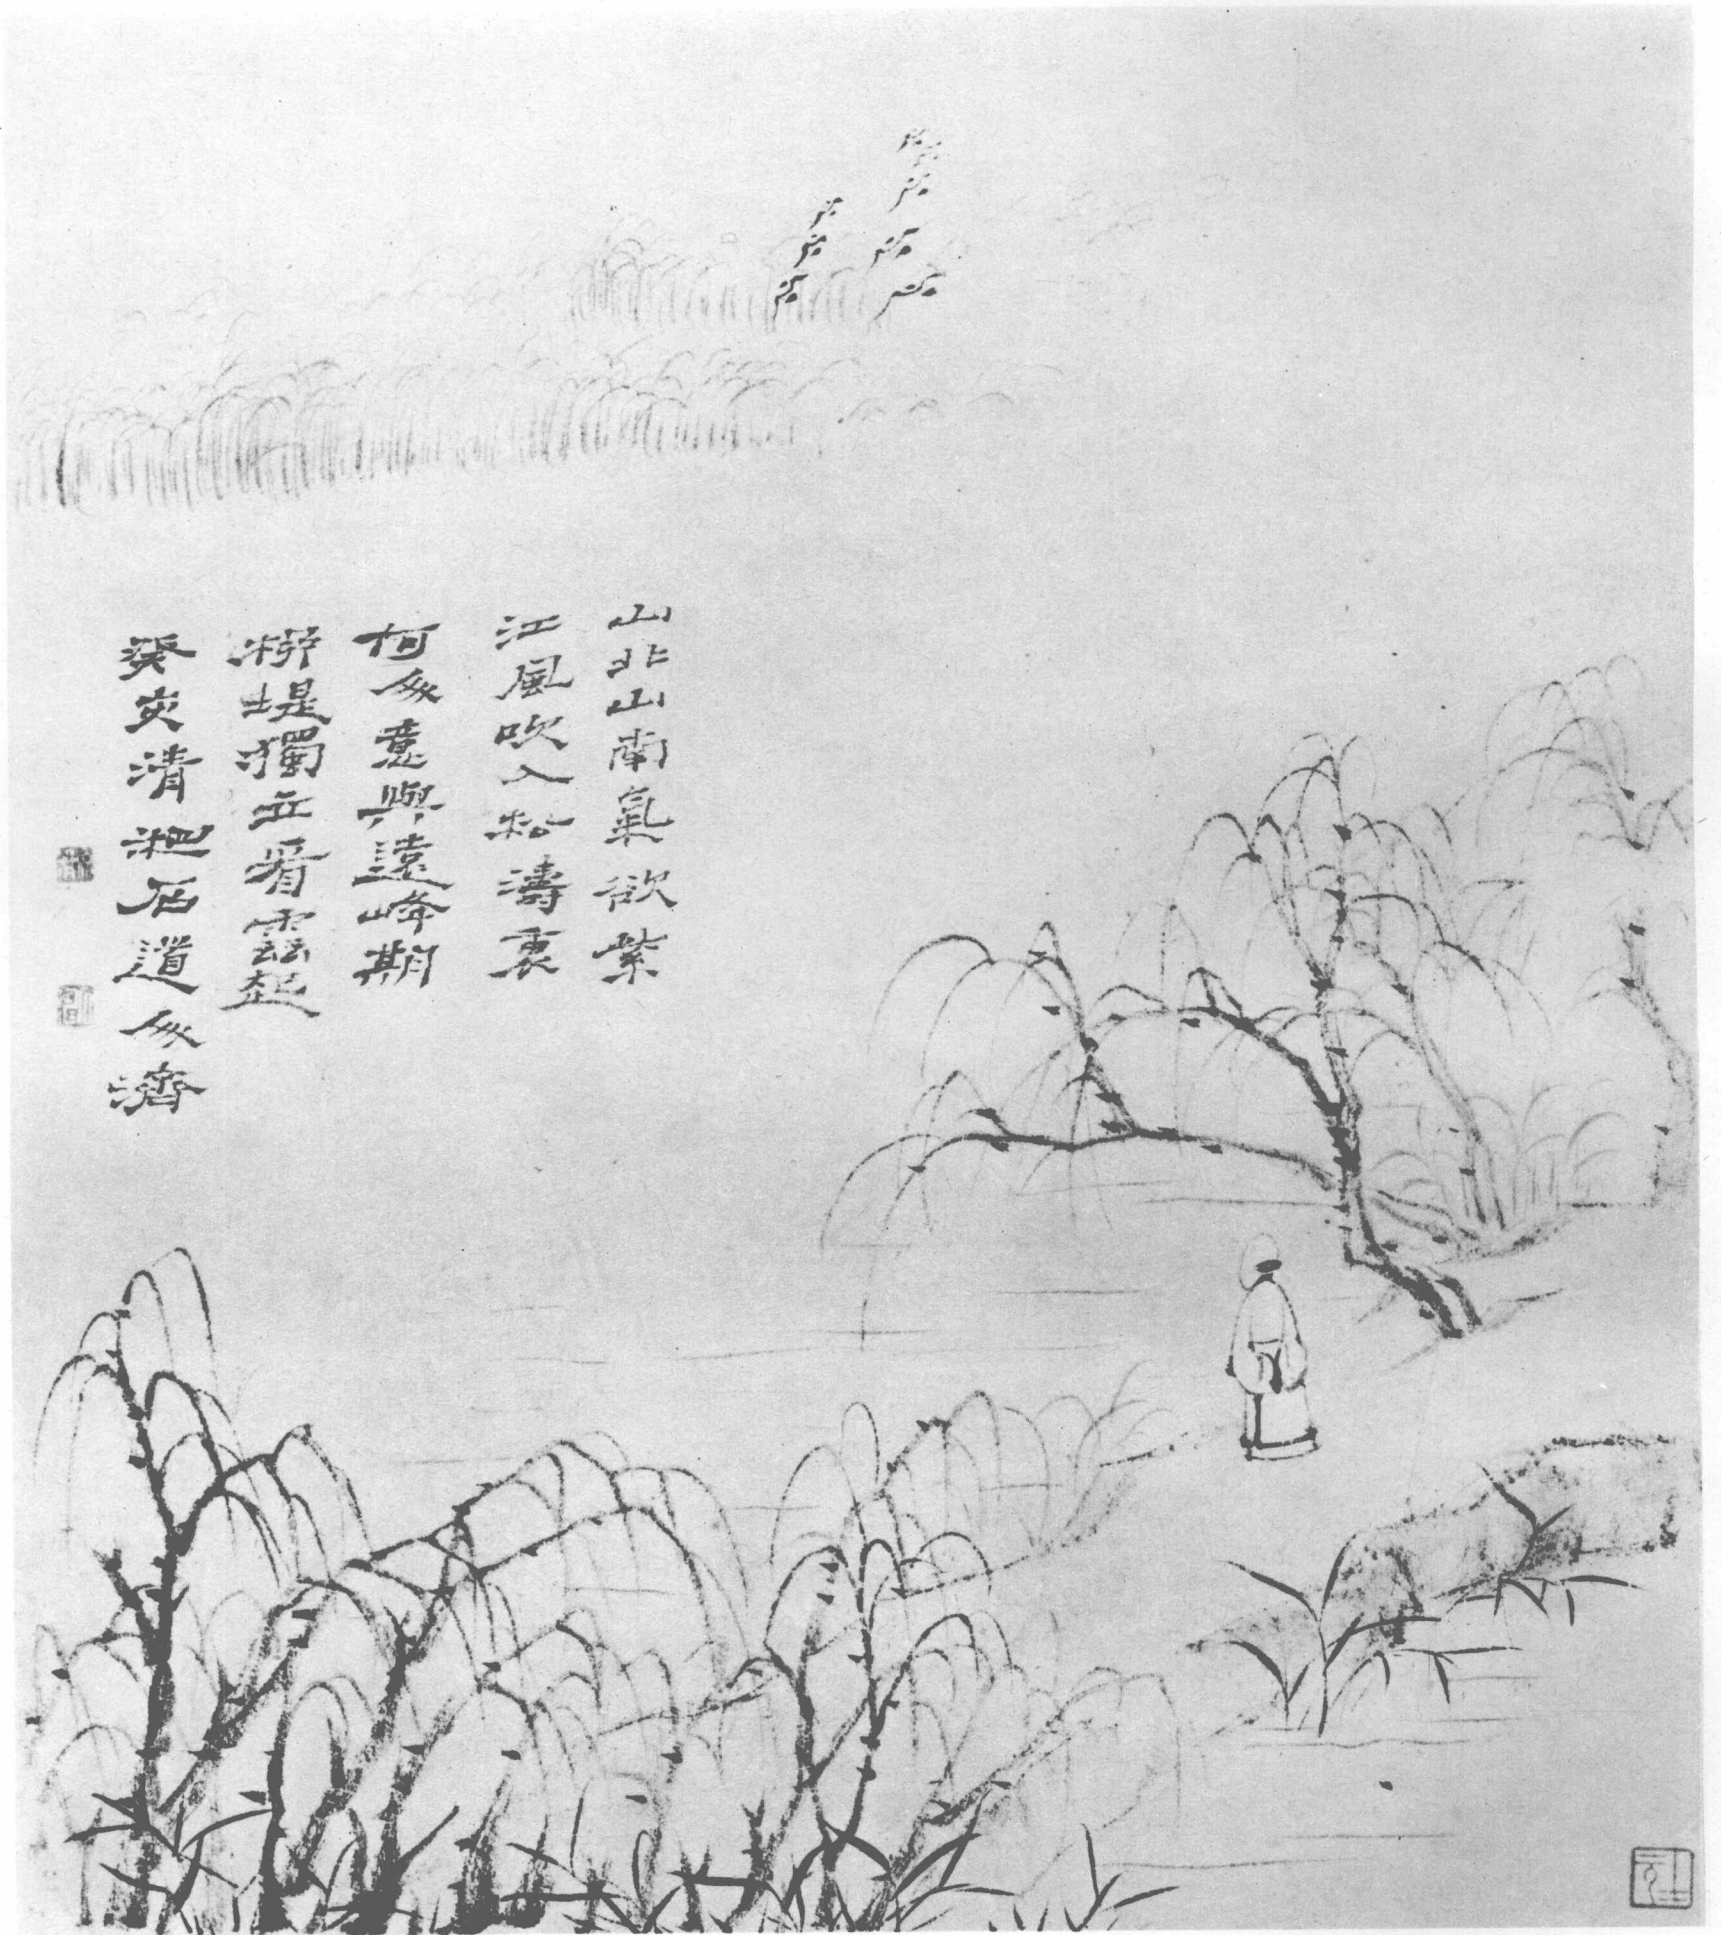 山北山南氣欲紫
江風吹入松濤裏
何人意與遠峰期
柳堤獨立看雲起
癸亥清湘石道人濟